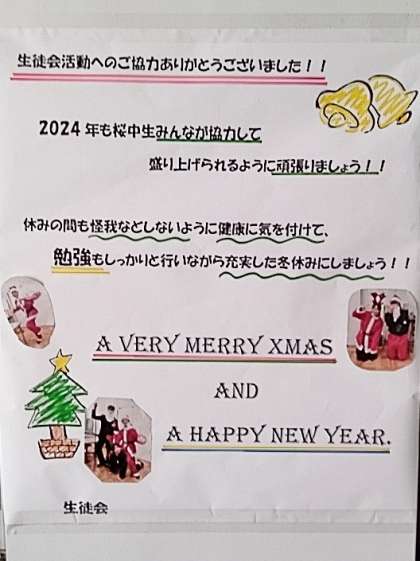 生徒会活動へのご協力ありがとうございました！！
2024年も桜中生みんなが協力して
盛り上げられるように頑張りましょう！！
休みの間も怪我などしないように健康に気を付けて、
勉強もしっかりと行いながら充実した冬休みにしましょう！！
A VERY MERRY XMAS
AND
A HAPPY NEW YEAR.
生徒会